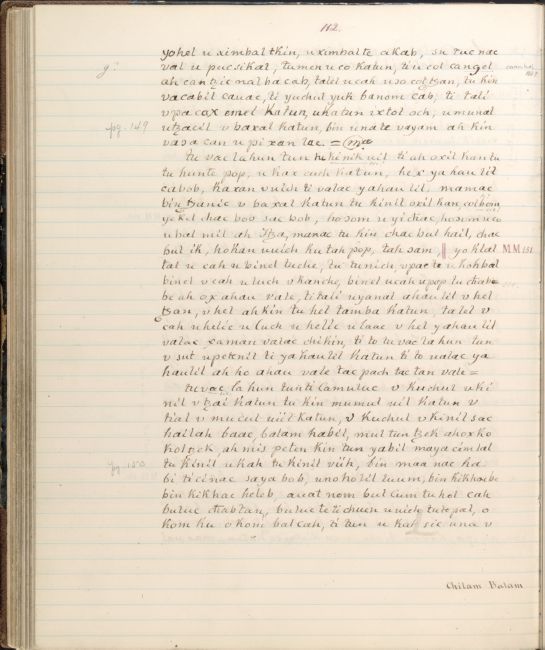 112.
yohel u ximbal tkin, u ximbalte akab, su tucnac
val u pucsikal, tumen u co katun, ti u col cangel
ah can tzicnal ba cab, talel u cah u sa col tzan, tu kin
vacabil cauac, ti yuchul yuk banom cab, ti tali
pg. 149
v pa cox emel Katun, u katun ixtol och, u munal
utzacil v baxal katun, bin u nate vayam ah kin
vasa can u pixan lae. =
tu vac lahun tun tu kinil uil ti ah oxil kan tu
tu hunte pop, u kax cuch katun, hex yahaulil
cabob, kaxan u uich ti valac yahaulil, mamac
bin tzanic v baxal katun tu kinil oxil kan, xolbom
yekel chac bob sac bob, hosom u yichac, hosom u co
u bal mil ah Itza, manac tu kin chac bul hail, chac
bul ik, hokan u uich ku tah pop, tah sam, yoklal
MM 151
tal u cah u binel tuche, tu tunich, v pacte u kohbal
binel v cah u luch v kanche, binel u cah u pop tu chabe
be ah ox ahau vale, ti tali uyanal ahaulil v hel
tzan, v hel ah kin tu hel tamba katun, talel v
cah u helic u luch u helic u laac v hel yahaulil
valac xaman valac chikin, ti to tu vac lahun tun
v sut u petenil ti yahaulil katun ti to ualac ya
haulil ah ho ahau vale tac pach tac tan vale =
tu vac lahun tun ti camuluc v kuchul u ki
nil v tzai katun tu kin mumul uil katun v
tial v mucul uil katun, v kuchul v kinil sac
hailah baac, balam habil, mul tun tzek ah oxko
pg. 150
kol tzek, ah mis peten kin tun yabil maya cimlal
tu kinil u kah tu kinil viih, bin maanac ha
bi ti cimac saya bob, unohol il luum, bin kikhoebe
bin kikhac helob, auat nom bul cum tu hol cah
buluc chabtan, bulucte ti chuen u uich tu te pal, o
kom ku okom balcah, ti tun u kat sic una v
Chilam Balam